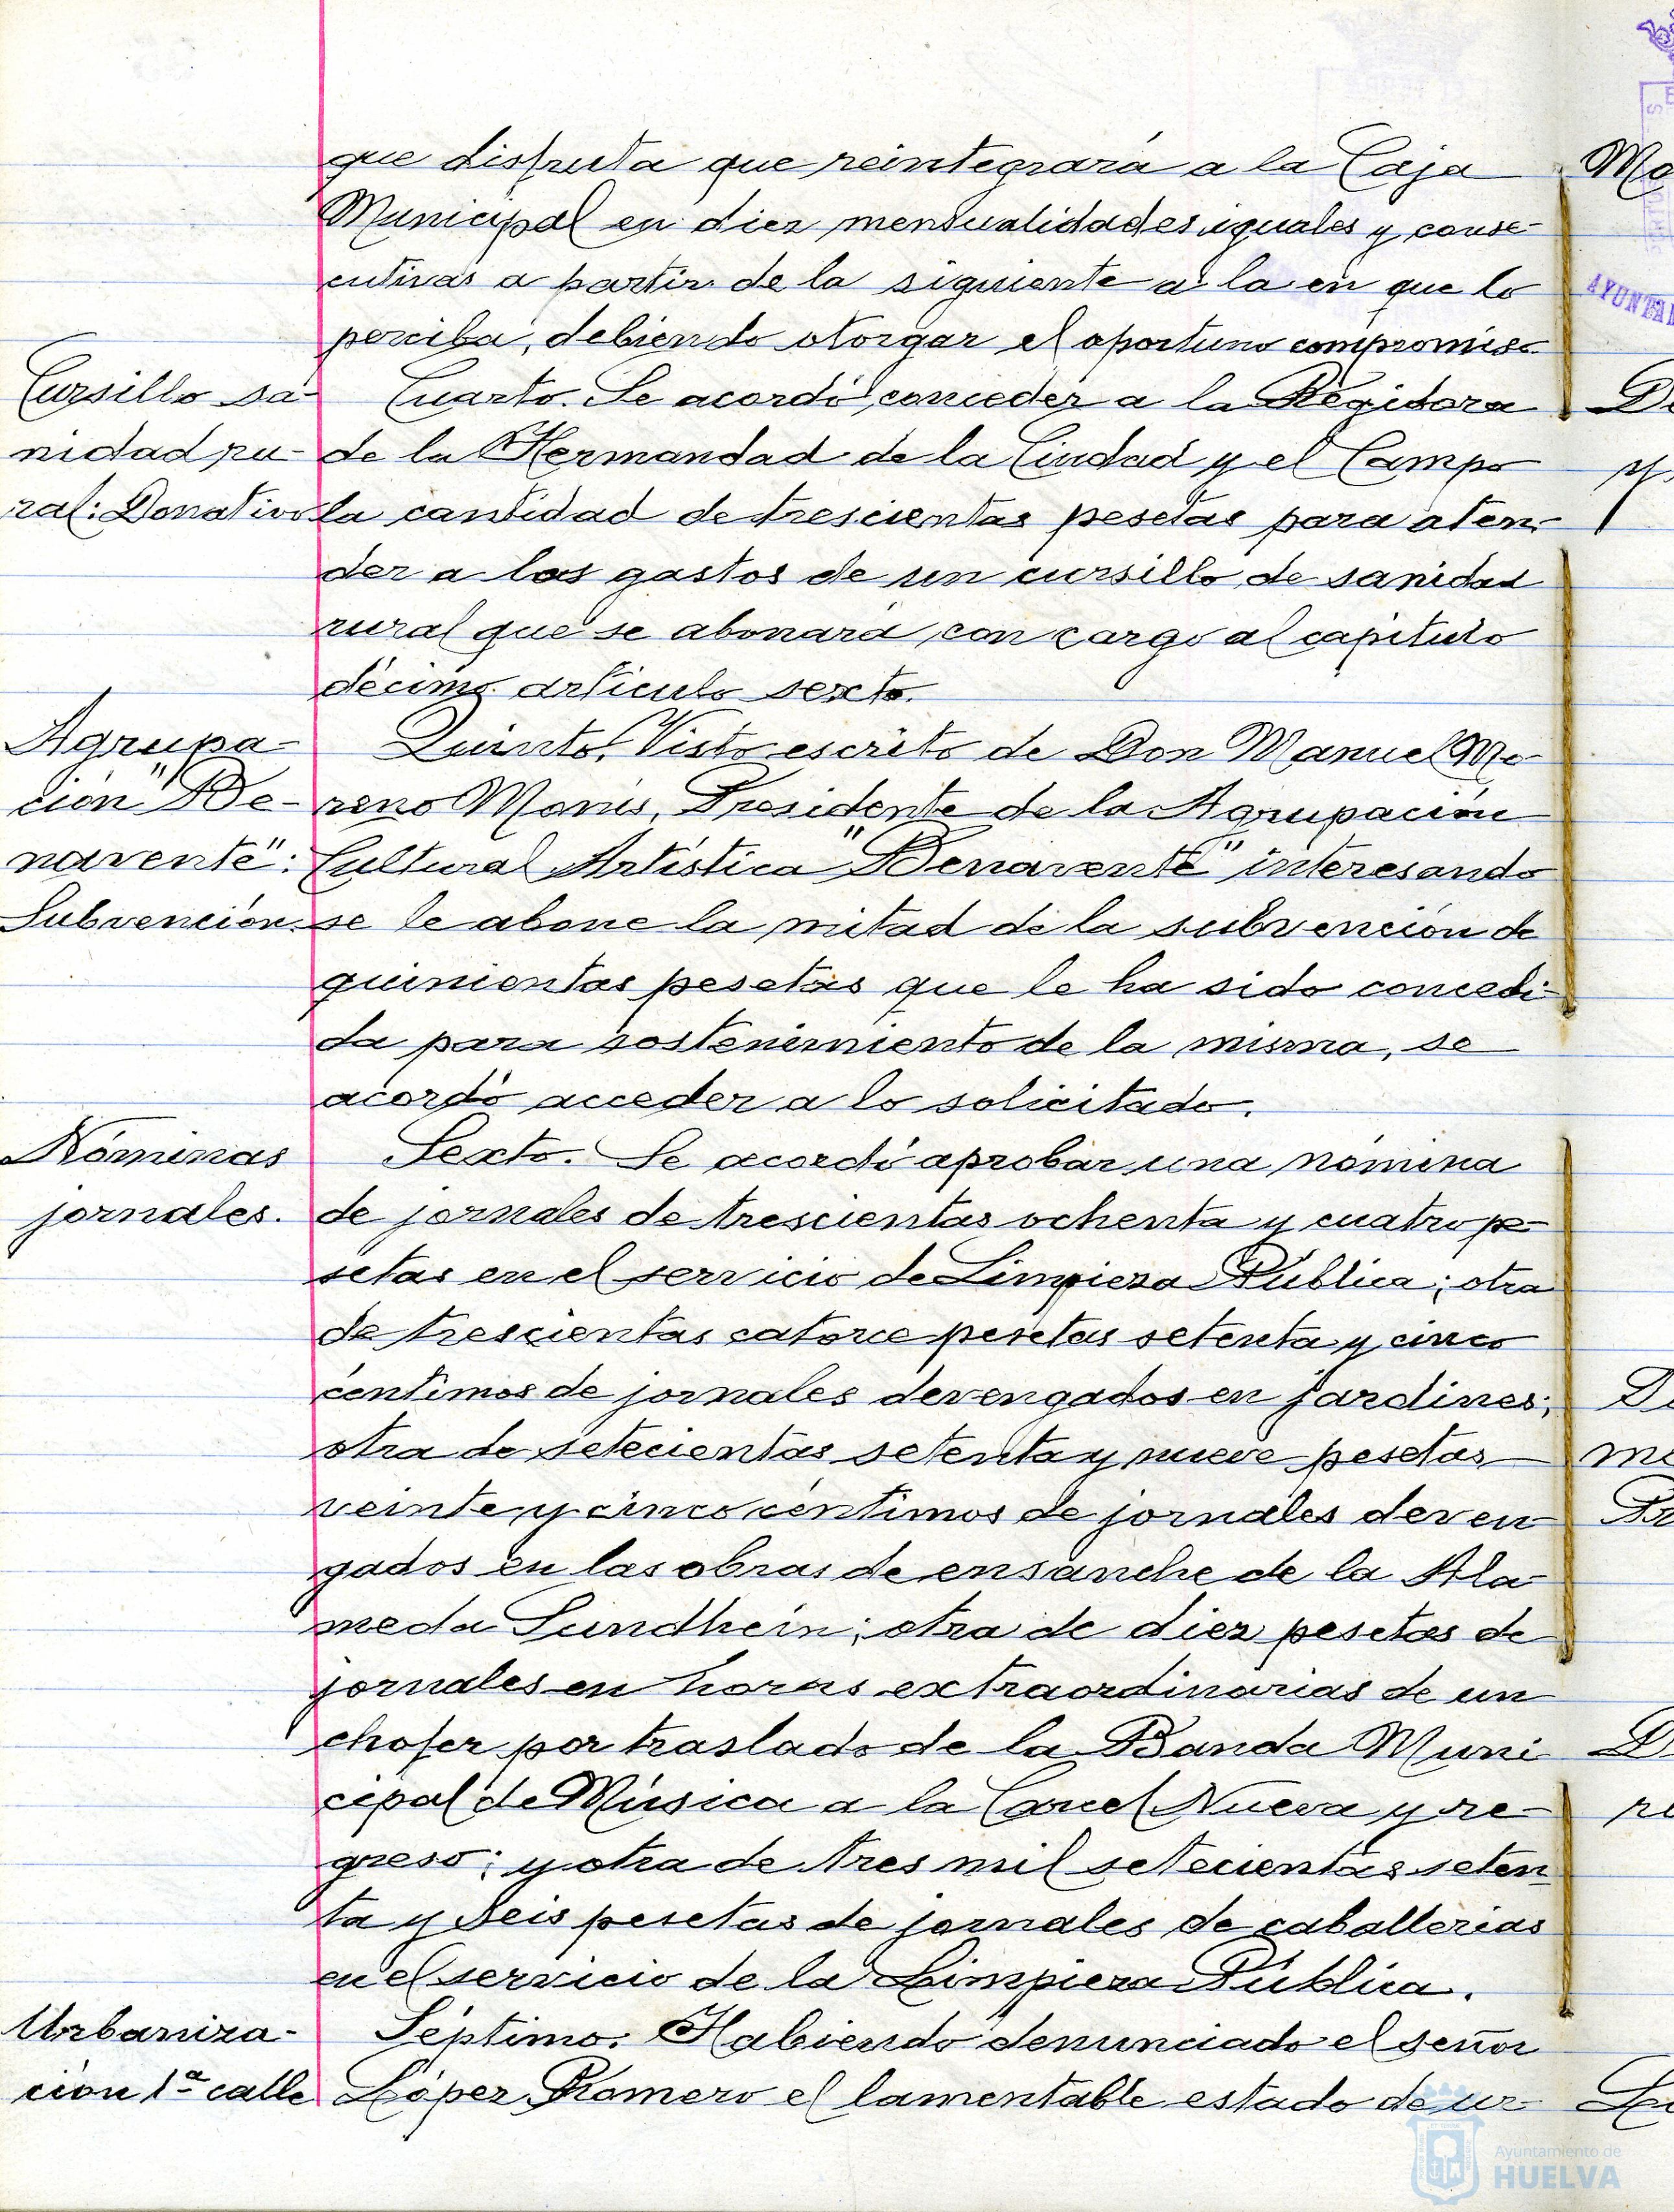 que disfruta que reintegrará a la Caja
Municipal en diez mensualidades iguales y conse-
cutivas a partir de la siguiente a la en que lo
perciba, debiendo otorgar el oportuno compromiso.
Cursillo sa-
nidad ru-
ral: Donativo
Cuarto. Se acordó conceder a la Regidora
de la Hermandad de la Ciudad y el Campo
la cantidad de trescientas pesetas para aten-
der a los gastos de un cursillo de sanidad
rural que se abonará con cargo al capítulo
décimo artículo sexto.
Agrupa-
ción "Be-
navente":
Subvención.
Quinto. Visto escrito de Don Manuel Mo-
reno Monís, Presidente de la Agrupación
Cultural Artística "Benavente" interesando
se le abone la mitad de la subvención de
quinientas pesetas que le ha sido concedi-
da para sostenimiento de la misma, se
acordó acceder a lo solicitado.
Nóminas
jornales.
Sexto. Se acordó aprobar una nómina
de jornales de trescientas ochenta y cuatro pe-
setas en el servicio de Limpieza Pública; otra
de trescientas catorce pesetas setenta y cinco
céntimos de jornales devengados en jardines;
otra de setecientas setenta y nueve pesetas
veinte y cinco céntimos de jornales deven-
gados en las obras de ensanche de la Ala-
meda Sundhein; otra de diez pesetas de
jornales en horas extraordinarias de un
chofer por traslado de la Banda Muni-
cipal de Música a la Carcel Nueva y re-
greso; y otra de tres mil setecientas seten-
ta y seis pesetas de jornales de caballerías
en el servicio de la Limpieza Pública.
Urbaniza-
ción 1ª calle
Séptimo. Habiendo denunciado el señor
López Romero el lamentable estado de ur-
AYUNTA
Ayuntamiento de
HUELVA